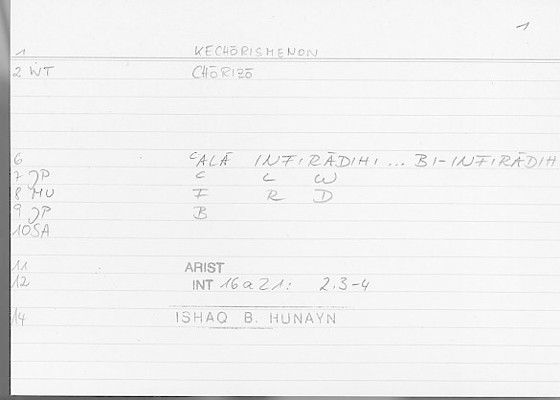 1
1 KECHŌRISMENON
2 WT CHŌRIZŌ
6 ʿALĀ INFIRĀDIHI ... BI-INFIRĀDIH
7 JP ʿ L W
8 MU F R D
9 JP B
10SA
11 ARIST
12 INT 16a21: 2.3-4
14 ISHAQ B. HUNAYN